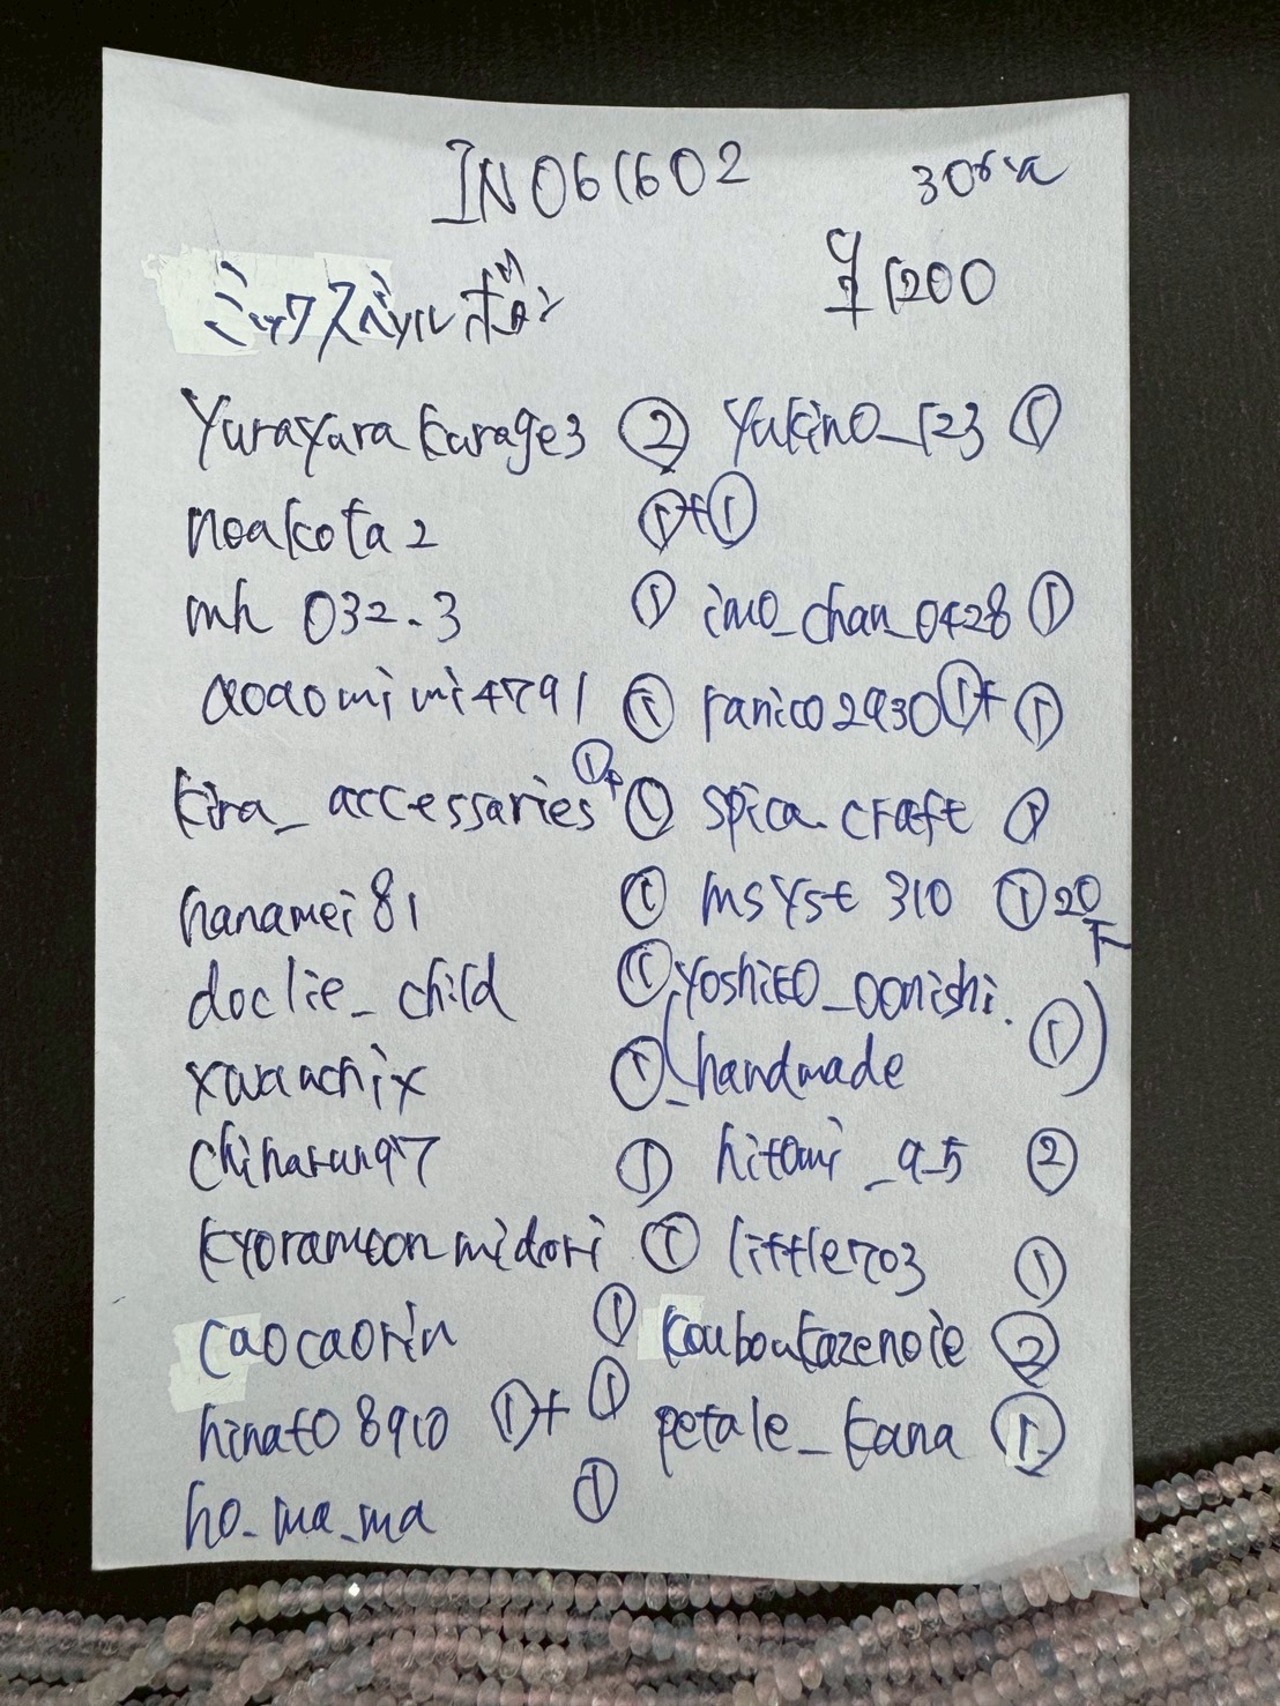 IN061602
¥1200
ミックスベリルボタン
yurayurakurage3 ② yukino_123 ①
noakota2 ①+①
mh 032.3 ① imo_chan_0428 ①
aoaomimi4791 ① ranico2930 ①+①
kira_accessaries ①+① spica.craft ①
hanamei81 ① msyst310 ① 20
doclie_child ① (yoshiko_oonishi.
① _handmade ①)
chiharun97 ① hitomi_9_5 ②
kyoramoonmidori ① little703 ①
caocaorin ① kouboukazenoie ②
hinato8910 ①+① petale_kana ①
ho_ma_ma ①